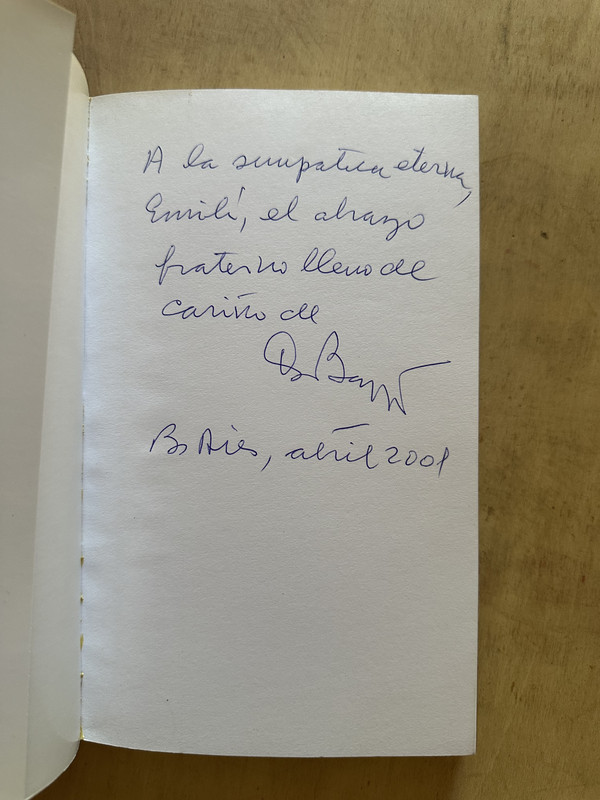 A la simpatica eterna,
Emilí, el abrazo
fraterno lleno de
cariño de
Bs Aires, abril 2001